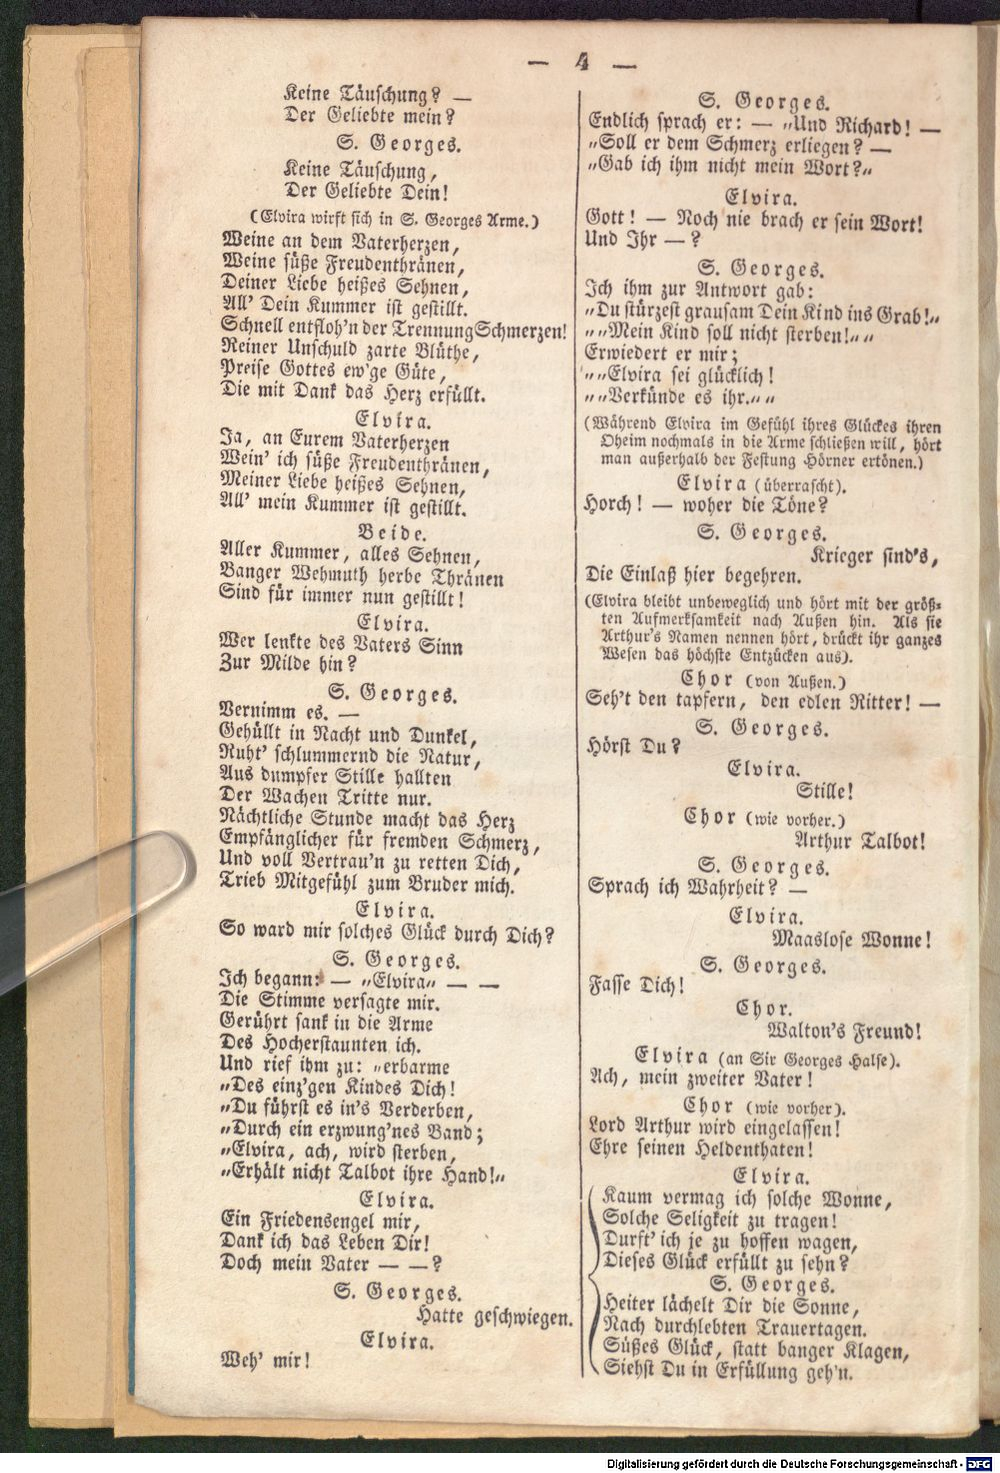 — 4 —
Keine Täuschung? —
Der Geliebte mein?
S. Georges.
Keine Täuschung,
Der Geliebte Dein!
(Elvira wirft sich in S. Georges Arme.)
Weine an dem Vaterherzen,
Weine süße Freudenthränen,
Deiner Liebe heißes Sehnen,
All' Dein Kummer ist gestillt.
Schnell entfloh'n der Trennung Schmerzen!
Reiner Unschuld zarte Blüthe,
Preise Gottes ew'ge Güte,
Die mit Dank das Herz erfüllt.
Elvira.
Ja, an Eurem Vaterherzen
Wein' ich süße Freudenthränen,
Meiner Liebe heißes Sehnen,
All' mein Kummer ist gestillt.
Beide.
Aller Kummer, alles Sehnen,
Banger Wehmuth herbe Thränen
Sind für immer nun gestillt!
Elvira.
Wer lenkte des Vaters Sinn
Zur Milde hin?
S. Georges.
Vernimm es. —
Gehüllt in Nacht und Dunkel,
Ruht' schlummernd die Natur,
Aus dumpfer Stille hallten
Der Wachen Tritte nur.
Nächtliche Stunde macht das Herz
Empfänglicher für fremden Schmerz,
Und voll Vertrau'n zu retten Dich,
Trieb Mitgefühl zum Bruder mich.
Elvira.
So ward mir solches Glück durch Dich?
S. Georges.
Ich begann: — „Elvira„ — —
Die Stimme versagte mir.
Gerührt sank in die Arme
Des Hocherstaunten ich.
Und rief ihm zu: „erbarme
„Des einz'gen Kindes Dich!
„Du führst es in's Verderben,
„Durch ein erzwung'nes Band;
„Elvira, ach, wird sterben,
„Erhält nicht Talbot ihre Hand!„
Elvira.
Ein Friedensengel mir,
Dank ich das Leben Dir!
Doch mein Vater — —?
S. Georges.
Hatte geschwiegen.
Elvira.
Weh' mir!
S. Georges.
Endlich sprach er: — „Und Richard! —
„Soll er dem Schmerz erliegen? —
„Gab ich ihm nicht mein Wort?„
Elvira.
Gott! — Noch nie brach er sein Wort!
Und Ihr — ?
S. Georges.
Ich ihm zur Antwort gab:
„Du stürzest grausam Dein Kind ins Grab!„
„„Mein Kind soll nicht sterben!„„
Erwiedert er mir;
„„Elvira sei glücklich!
„„Verkünde es ihr.„„
(Während Elvira im Gefühl ihres Glückes ihren
Oheim nochmals in die Arme schließen will, hört
man außerhalb der Festung Hörner ertönen.)
Elvira (überrascht).
Horch! — woher die Töne?
S. Georges.
Krieger sind's,
Die Einlaß hier begehren.
(Elvira bleibt unbeweglich und hört mit der größ=
ten Aufmerksamkeit nach Außen hin. Als sie
Arthur's Namen nennen hört, drückt ihr ganzes
Wesen das höchste Entzücken aus).
Chor (von Außen.)
Seh't den tapfern, den edlen Ritter! —
S. Georges.
Hörst Du?
Elvira.
Stille!
Chor (wie vorher.)
Arthur Talbot!
S. Georges.
Sprach ich Wahrheit? —
Elvira.
Maaslose Wonne!
S. Georges.
Fasse Dich!
Chor.
Walton's Freund!
Elvira (an Sir Georges Halse).
Ach, mein zweiter Vater!
Chor (wie vorher).
Lord Arthur wird eingelassen!
Ehre seinen Heldenthaten!
Elvira.
Kaum vermag ich solche Wonne,
Solche Seligkeit zu tragen!
Durft' ich je zu hoffen wagen,
Dieses Glück erfüllt zu sehn?
S. Georges.
Heiter lächelt Dir die Sonne,
Nach durchlebten Trauertagen.
Süßes Glück, statt banger Klagen,
Siehst Du in Erfüllung geh'n.
Digitalisierung gefördert durch die Deutsche Forschungsgemeinschaft - DFG